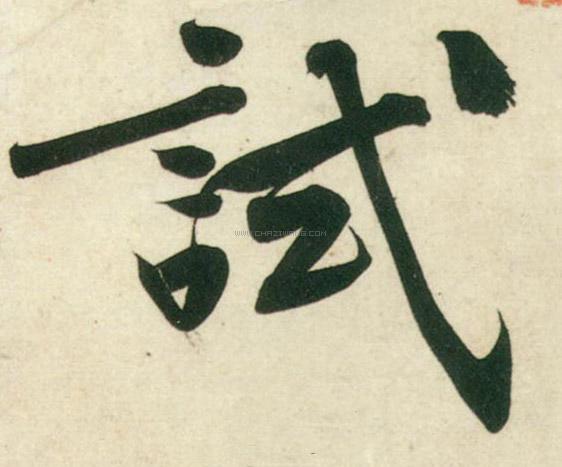 試
WWW.CHAZIWANG.COM